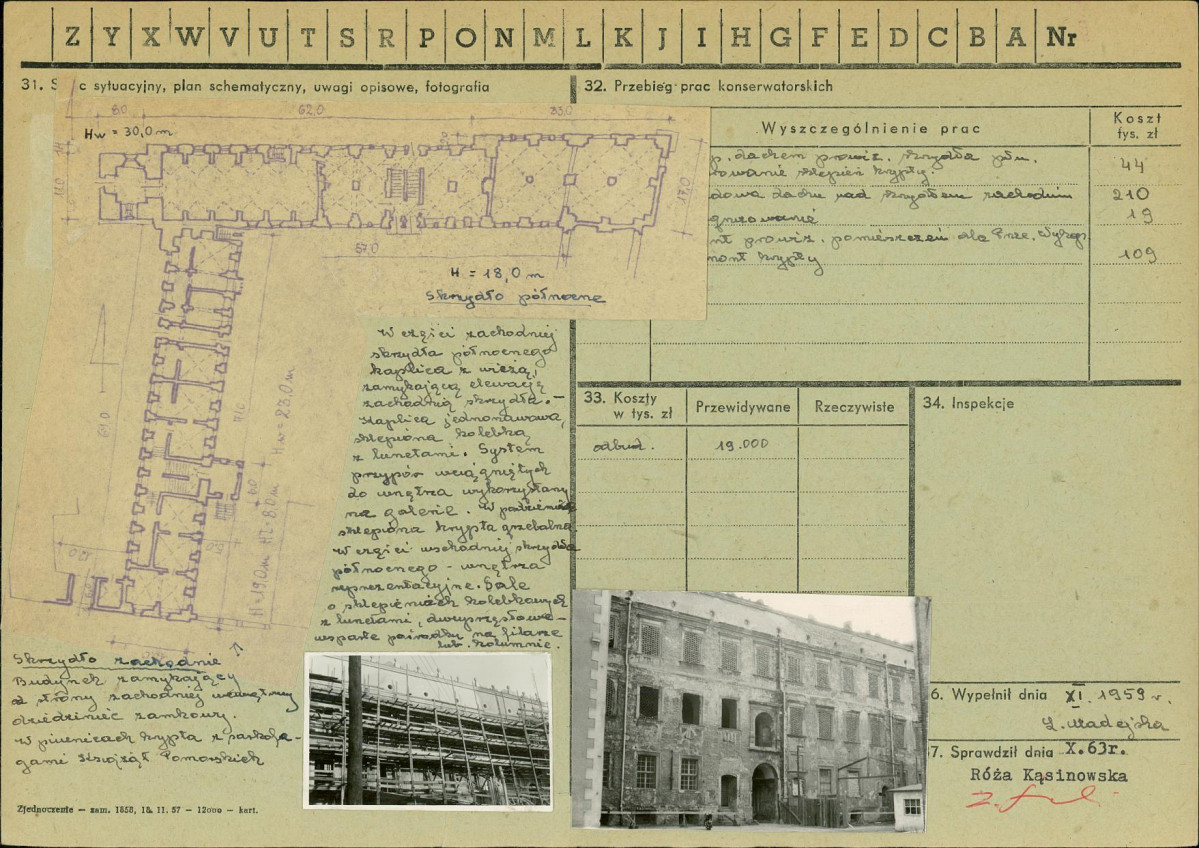 Z Y X W V U T S R P O N M L K J I H G F E D C B A Nr
31. S c sytuacyjny, plan schematyczny, uwagi opisowe, fotografia
8,0 62,0 33,0
Hw = 30,0 m
11,0
17,0
57,0
H = 18,0 m
Skrzydło północne
W części zachodniej
skrzydła północnego
kaplica z wieżą,
zamykającą elewację
zachodnią skrzydła. –
Kaplica jednonawowa,
sklepiona kolebką
z lunetami. System
przypór wciągniętych
do wnętrza wykorzystany
na galerie. W podziemiu
sklepiona krypta grzebalna.
W części wschodniej skrzydła
północnego – wnętrza
reprezentacyjne. Sale
o sklepieniach kolebkowych
z lunetami, dwuprzęsłowe –
wsparte pośrodku na filarze
lub kolumnie.
61,0
Hw = 23,0 m
H = 19,0 m H2 = 8,0 m
Skrzydło zachodnie
Budynek zamykający
od strony zachodniej wewnętrzny
dziedziniec zamkowy.
W piwnicach krypta z sarkofa-
gami Książąt Pomorskich
Zjednoczenie – zam. 1858, 18. 11. 57 – 12000 – kart.
32. Przebieg prac konserwatorskich
Wyszczególnienie prac
Koszt
tys. zł
p. dachem prowiz. skrzydła płn.
owanie sklepień krypty.
44
dowa dachu nad skrzydłem zachodnim
210
gruzowanie
19
nt prowiz. pomieszczeń dla Prac.
mont krypty
109
33. Koszty
w tys. zł
Przewidywane
Rzeczywiste
odbud.
19.000
34. Inspekcje
6. Wypełnił dnia XI. 1959 r.
Ł. Madejska
7. Sprawdził dnia X.63r.
Róża Kąsinowska